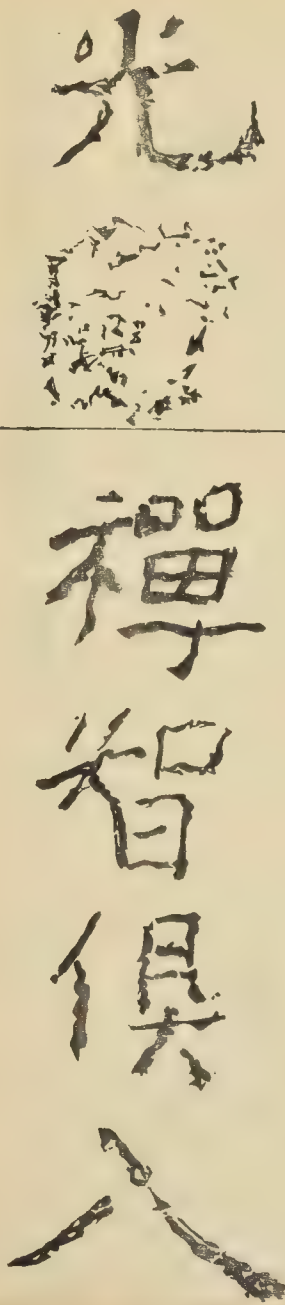 光
禪智俱入